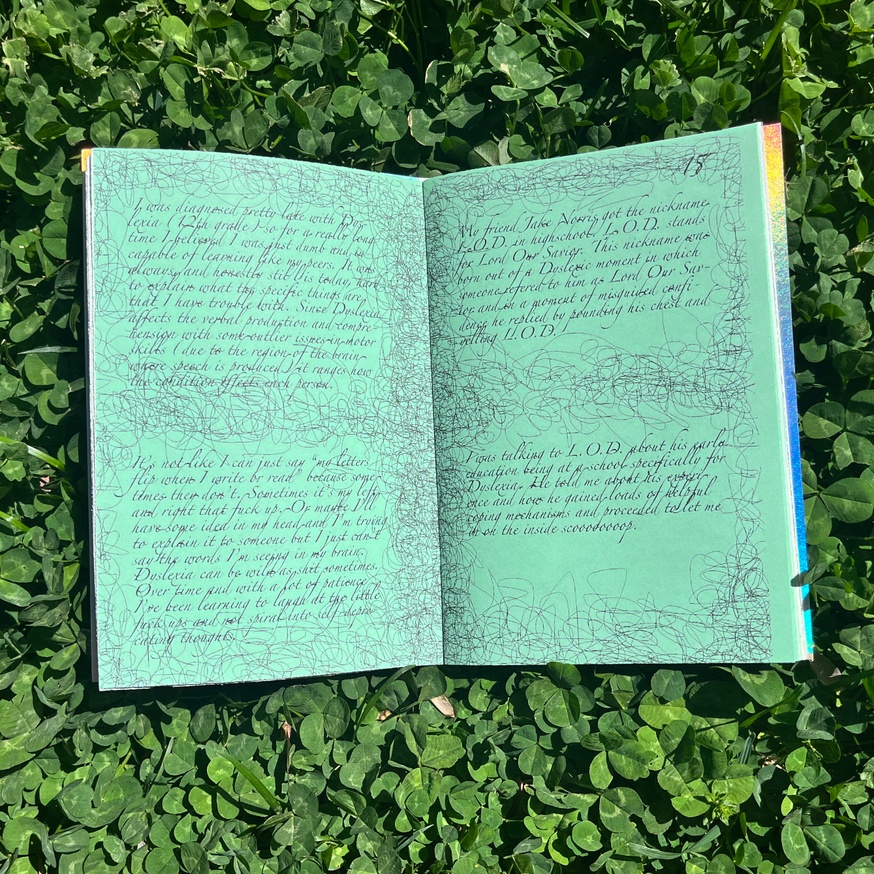 I was diagnosed pretty late with Dys-
lexia (12th grade) so for a really long
time I believed I was just dumb and in-
capable of learning like my peers. It was
always, and honestly still is today, hard
to explain what my specific things are
that I have trouble with. Since Dyslexia
affects the verbal production and compre-
hension with some outlier issues in motor
skills (due to the region of the brain
where speech is produced) it ranges how
the condition effects each person.
It's not like I can just say "my letters
flip when I write or read" because some-
times they don't. Sometimes it's my left
and right that fuck up. Or maybe I'll
have some idea in my head and I'm trying
to explain it to someone but I just can't
say the words I'm seeing in my brain.
Dyslexia can be wild as shit sometimes.
Over time and with a lot of patience
I've been learning to laugh at the little
fuck ups and not spiral into self-depre-
cating thoughts.
My friend Jake Norris got the nickname
L.O.D. in highschool. L.O.D. stands
for Lord Our Savior. This nickname was
born out of a Dyslexic moment in which
someone refered to him as Lord Our Sav-
ior and in a moment of misguided confi-
dence he replied by pounding his chest and
yelling L.O.D.!
I was talking to L.O.D. about his early
education being at a school specifically for
Dyslexia. He told me about his experi-
ence and how he gained loads of helpful
coping mechanisms and proceeded to let me
in on the inside scooooooop.